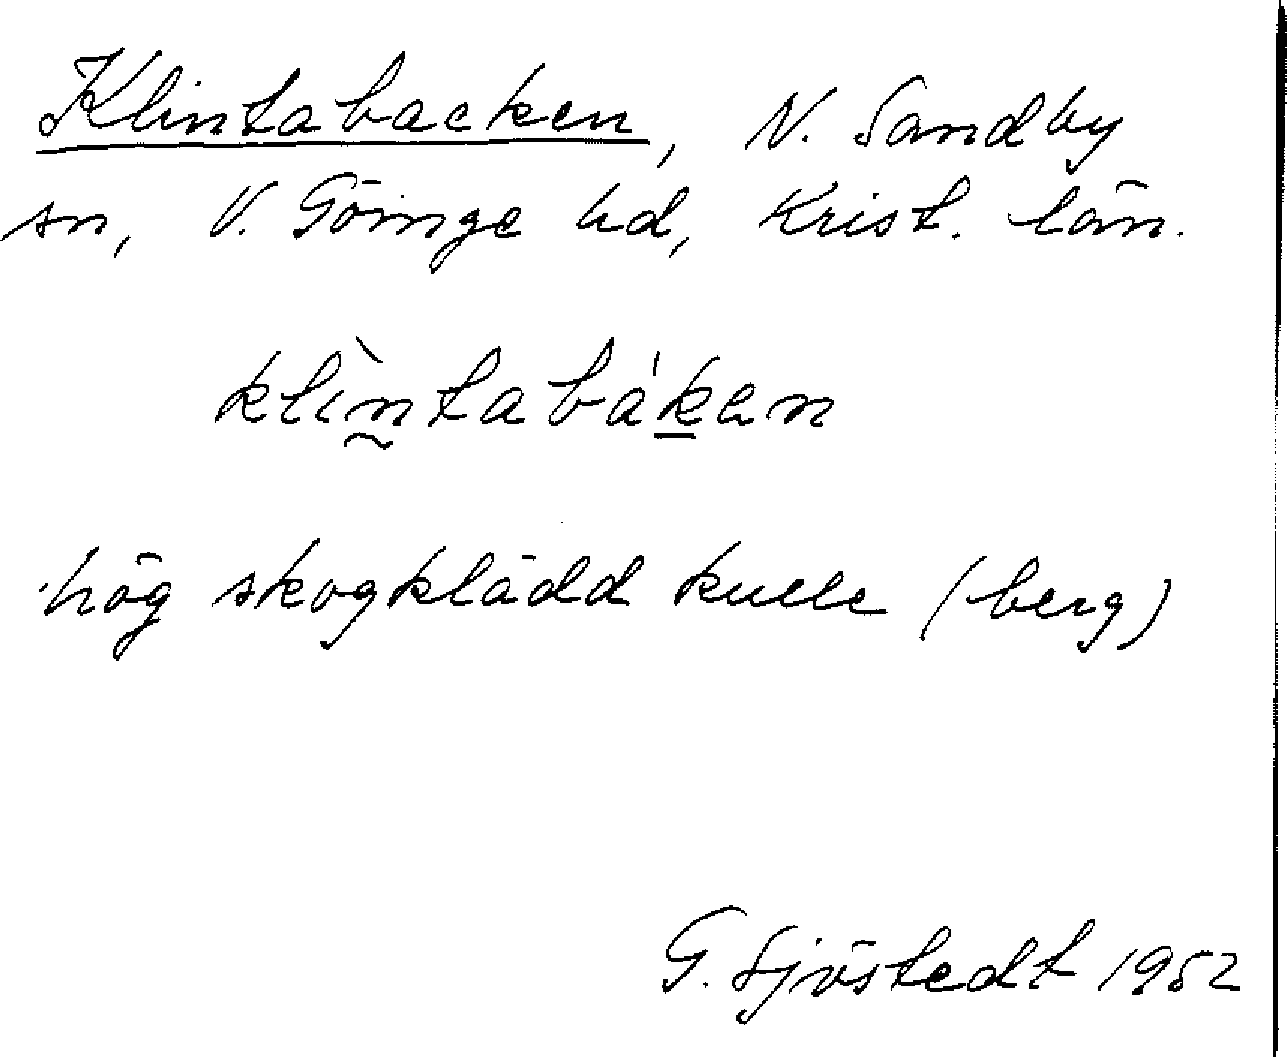 Klintabacken, N. Sandby
sn, V. Göinge hd, Krist. län.
klìntabákan
hög skogklädd kulle (berg)
G. Sjöstedt 1952